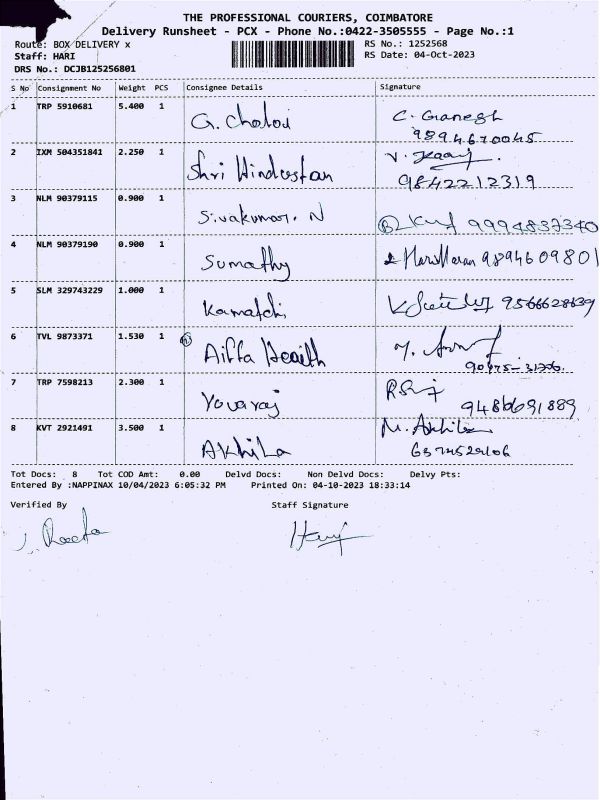 THE PROFESSIONAL COURIERS, COIMBATORE
Delivery Runsheet - PCX - Phone No.:0422-3505555 - Page No.:1
Route: BOX DELIVERY x
RS No.: 1252568
Staff: HARI
RS Date: 04-Oct-2023
DRS No.: DCJB125256801
S No Consignment No Weight PCS Consignee Details Signature
1 TRP 5910681 5.400 1 C. Ganesh
9894670045
2 IXM 504351841 2.250 1 Shri Hindustan
9842212319
3 NLM 90379115 0.900 1 Sivakumar. N 9994837340
4 NLM 90379190 0.900 1 Sumathy Hariharan 9894609801
5 SLM 329743229 1.000 1 Kamatchi 9566628639
6 TVL 9873371 1.530 1 Health
7 TRP 7598213 2.300 1 Yovaraj
8 KVT 2921491 3.500 1 Akhila M. Akhila
Tot Docs: 8 Tot COD Amt: 0.00 Delvd Docs: Non Delvd Docs: Delvy Pts:
Entered By :NAPPINAX 10/04/2023 6:05:32 PM Printed On: 04-10-2023 18:33:14
Verified By Staff Signature